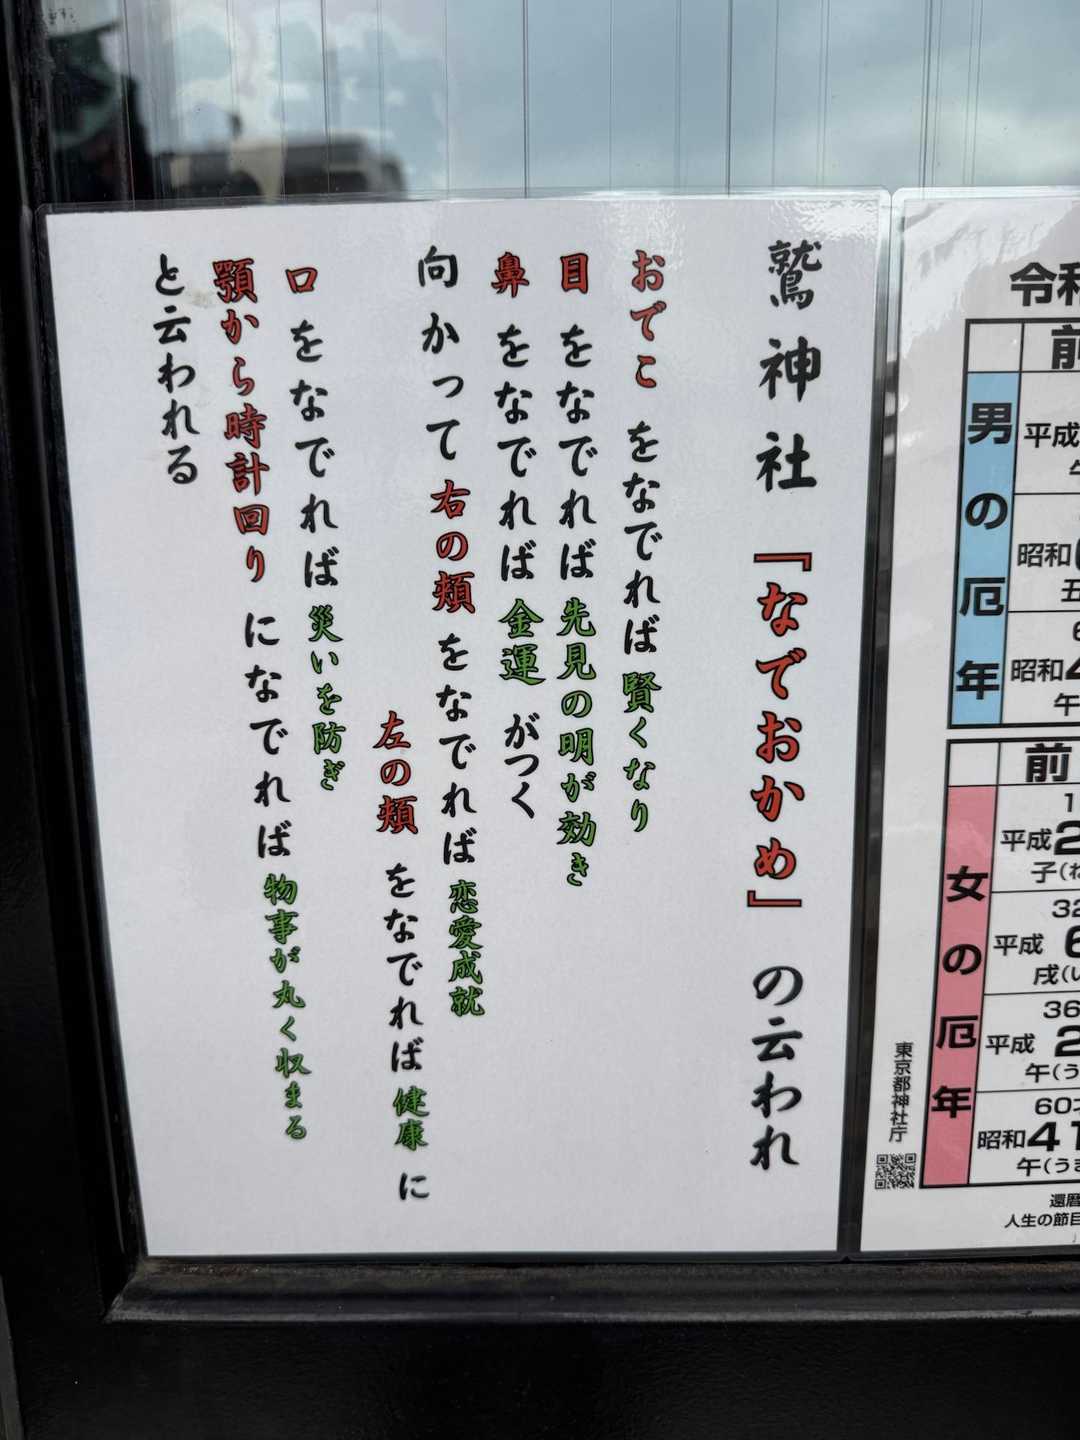 鷲神社『なでおかめ』の云われ
おでこをなでれば賢くなり
目をなでれば先見の明が効き
鼻をなでれば金運がつく
向かって右の頬をなでれば恋愛成就
左の頬をなでれば健康に
口をなでれば災いを防ぎ
顎から時計回りになでれば物事が丸く収まる
と云われる
令和
前
男の厄年
平成
昭和
丑
昭和
午
前
女の厄年
平成2
子(ね
32
平成6
戌(い
36
平成2
午(う
60
昭和41
午(うま
還暦
人生の節目
東京都神社庁